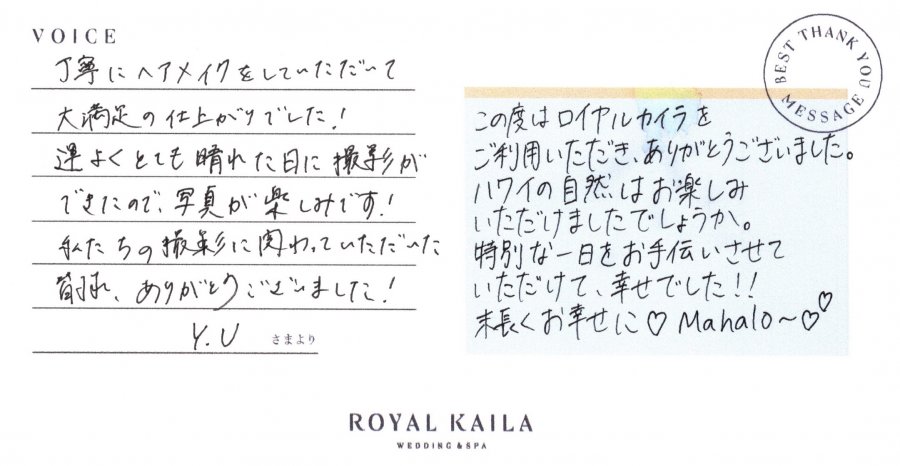 VOICE
丁寧にヘアメイクをしていただいて
大満足の仕上がりでした!
運よくとても晴れた日に撮影が
できたので、写真が楽しみです!
私たちの撮影に関わっていただいた
皆様、ありがとうございました!
Y.U さまより
BEST THANK YOU MESSAGE
この度はロイヤルカイラを
ご利用いただき、ありがとうございました。
ハワイの自然はお楽しみ
いただけましたでしょうか。
特別な一日をお手伝いさせて
いただけて、幸せでした!!
末長くお幸せに♡ Mahalo~♡♡
ROYAL KAILA
WEDDING & SPA